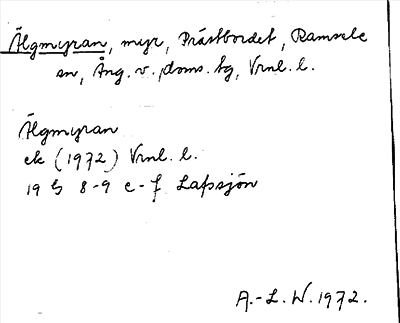 Älgmyran, myr, Prästbordet, Ramsele
sn, Ång. v. doms. tg, Vrnl. l.
Älgmyran
ek (1972) Vrnl. l.
19 G 8-9 e-f Lafssjön
A.-L. W. 1972.